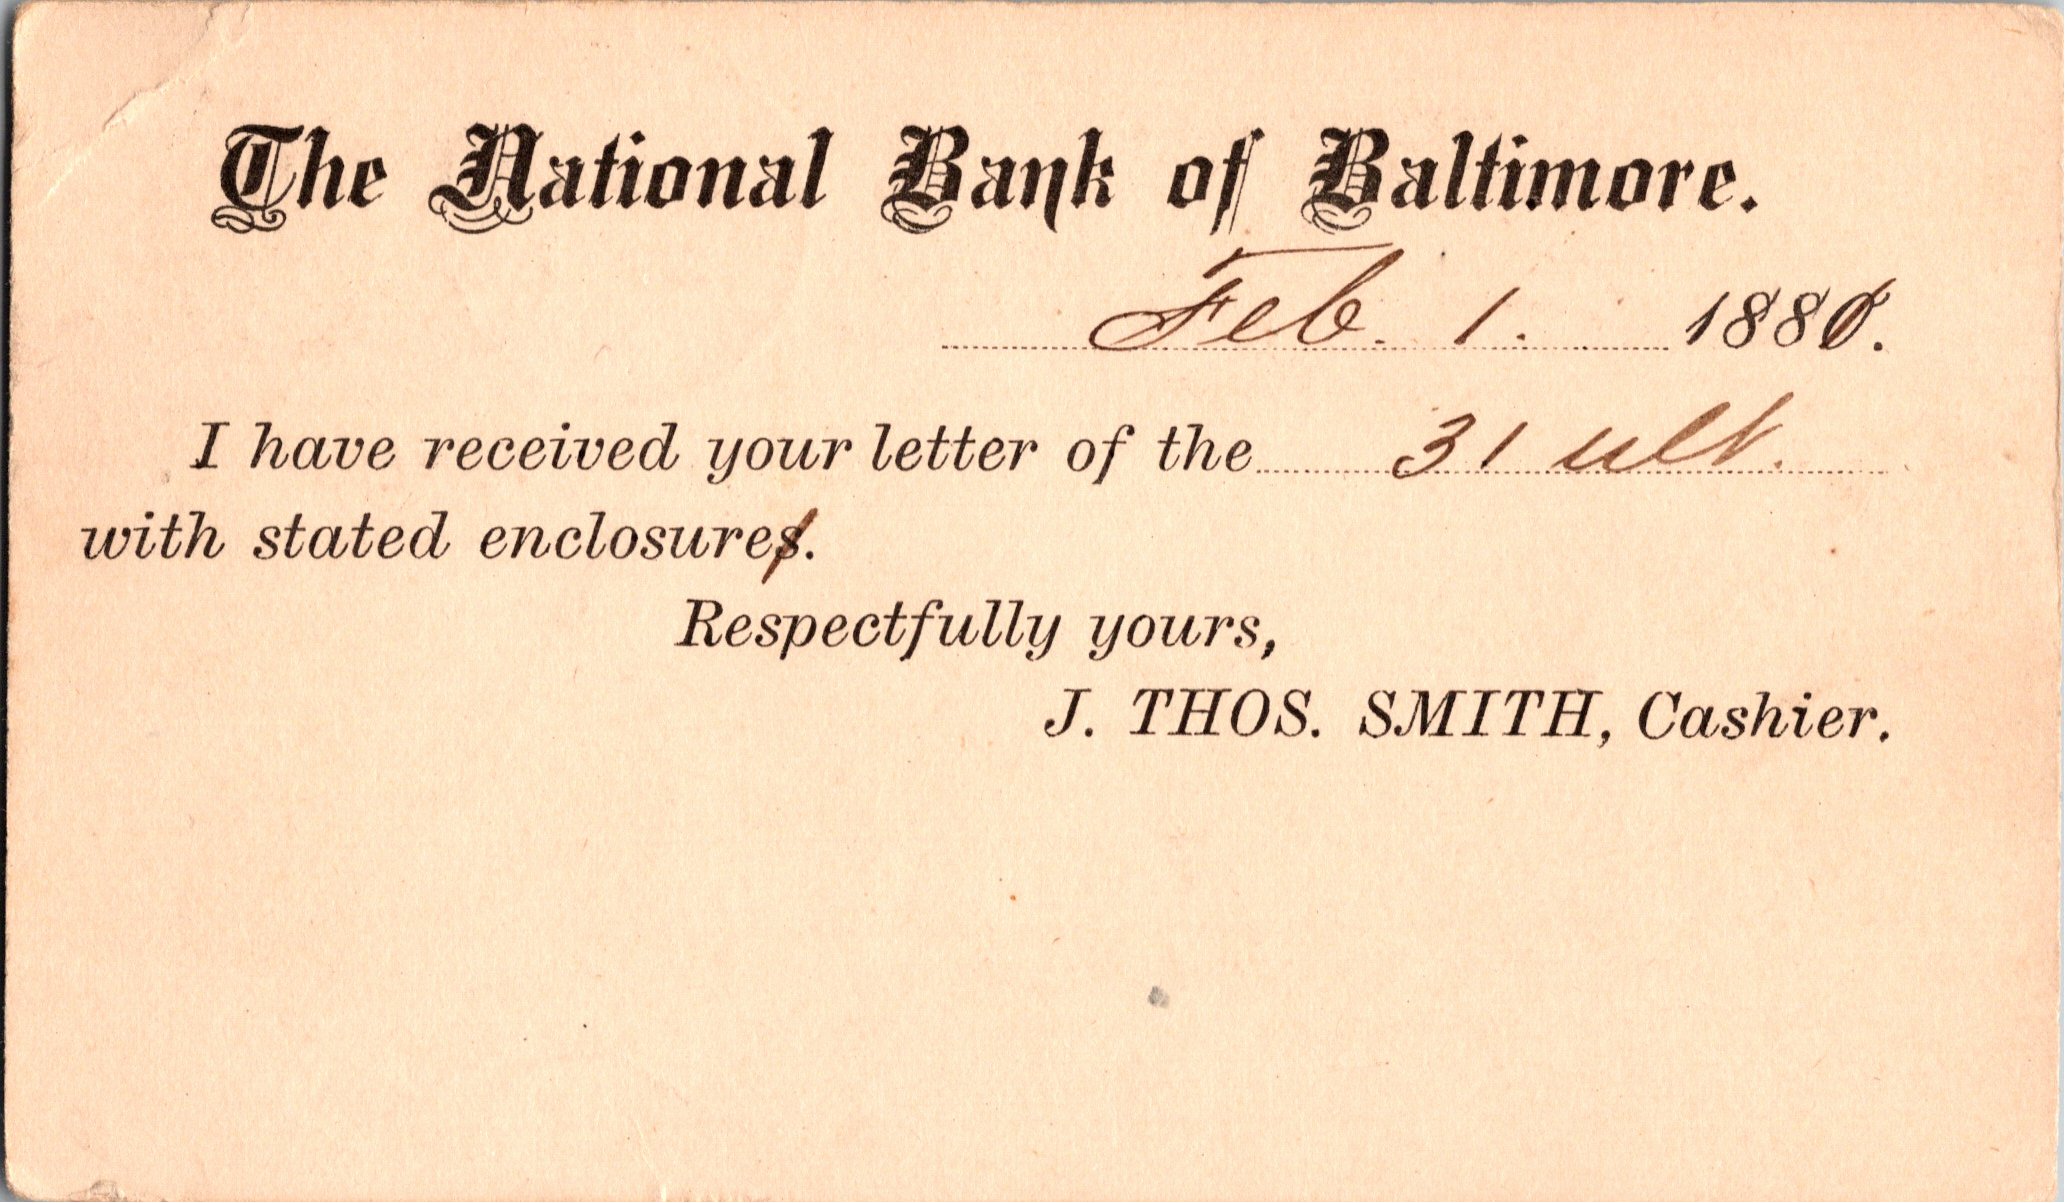 The National Bank of Baltimore.
Feb. 1. 1880.
I have received your letter of the 31 ult.
with stated enclosures.
Respectfully yours,
J. THOS. SMITH, Cashier.